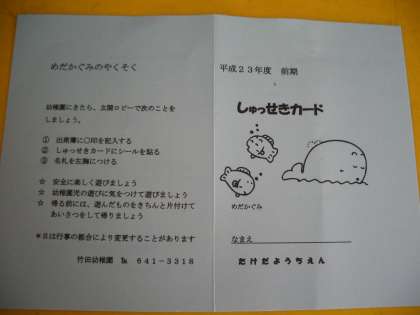 めだかぐみのやくそく
幼稚園にきたら、玄関ロビーで次のことを
しましょう。
① 出席簿に○印を記入する
② しゅっせきカードにシールを貼る
③ 名札を左胸につける
☆ 安全に楽しく遊びましょう
☆ 幼稚園児の遊びに気をつけて遊びましょう
☆ 帰る前には、遊んだものをきちんと片付けて
あいさつをして帰りましょう
*日は行事の都合により変更することがあります
竹田幼稚園 ℡ 641-3318
平成23年度 前期
しゅっせきカード
めだかぐみ
なまえ
たけだようちえん